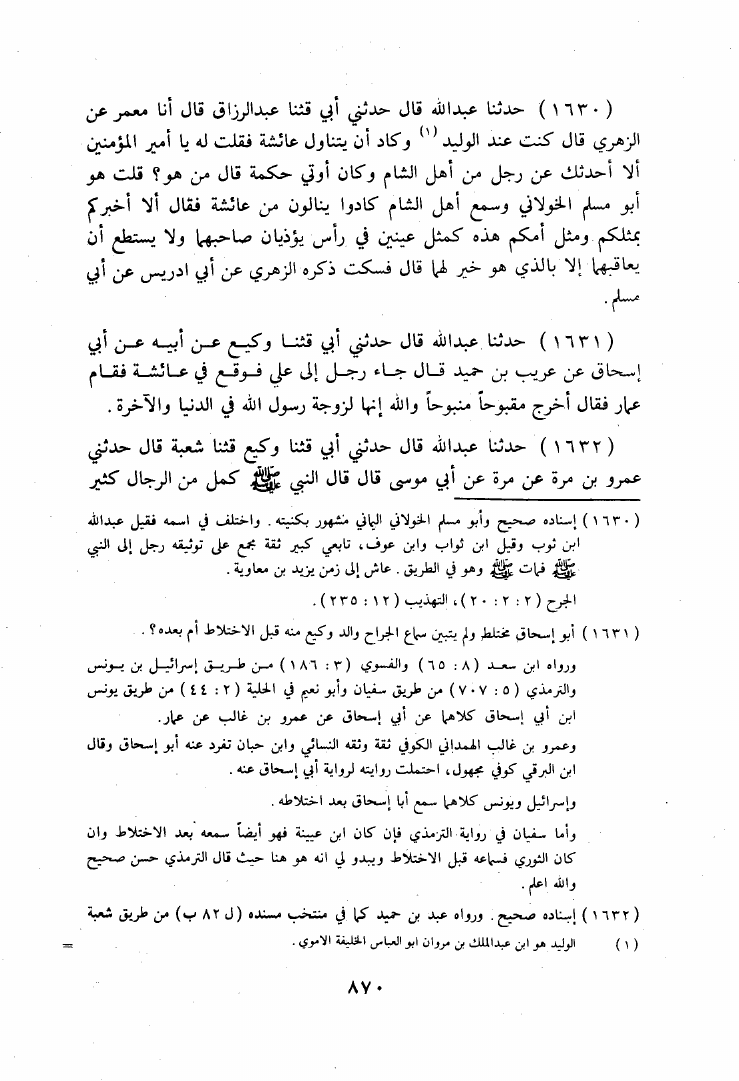 (١٦٣٠) حدثنا عبدالله قال حدثني أبي قثنا عبدالرزاق قال أنا معمر عن
الزهري قال كنت عند الوليد (١) وكاد أن يتناول عائشة فقلت له يا أمير المؤمنين
ألا أحدثك عن رجل من أهل الشام وكان أوتي حكمة قال من هو؟ قلت هو
أبو مسلم الخولاني وسمع أهل الشام كادوا ينالون من عائشة فقال ألا أخبركم
بمثلكم ومثل أمكم هذه كمثل عينين في رأس يؤذيان صاحبهما ولا يستطع أن
يعاقبهما إلا بالذي هو خير لهما قال فسكت ذكره الزهري عن أبي ادريس عن أبي
مسلم.
(١٦٣١) حدثنا عبدالله قال حدثني أبي قثنـا وكيـع عـن أبيـه عـن أبي
إسحاق عن عريب بن حميد قـال جـاء رجـل إلى علي فـوقـع في عـائشـة فقـام
عمار فقال أخرج مقبوحاً منبوحاً والله إنها لزوجة رسول الله في الدنيا والآخرة.
(١٦٣٢) حدثنا عبدالله قال حدثني أبي قثنا وكيع قثنا شعبة قال حدثني
عمرو بن مرة عن مرة عن أبي موسى قال قال النبي ﷺ كمل من الرجال كثير
(١٦٣٠) إسناده صحيح وأبو مسلم الخولاني اليماني مشهور بكنيته. واختلف في اسمه فقيل عبدالله
ابن ثوب وقيل ابن ثواب وابن عوف، تابعي كبير ثقة مجمع على توثيقه رجل إلى النبي
ﷺ فمات ﷺ وهو في الطريق. عاش إلى زمن يزيد بن معاوية.
الجرح (٢: ٢: ٢٠)، التهذيب (١٢: ٢٣٥).
(١٦٣١) أبو إسحاق مختلط ولم يتبين سماع الجراح والد وكيع منه قبل الاختلاط أم بعده؟.
ورواه ابن سعـد (٨: ٦٥) والفسوي (٣: ١٨٦) مـن طـريـق إسرائيـل بن يـونس
والترمذي (٥: ٧٠٧) من طريق سفيان وأبو نعيم في الحلية (٢: ٤٤) من طريق يونس
ابن أبي إسحاق كلاهما عن أبي إسحاق عن عمرو بن غالب عن عمار.
وعمرو بن غالب الهمداني الكوفي ثقة وثقه النسائي وابن حبان تفرد عنه أبو إسحاق وقال
ابن البرقي كوفي مجهول، احتملت روايته لرواية أبي إسحاق عنه.
وإسرائيل ويونس كلاهما سمع أبا إسحاق بعد اختلاطه.
وأما سفيان في رواية الترمذي فإن كان ابن عيينة فهو أيضاً سمعه بعد الاختلاط وان
كان الثوري فسماعه قبل الاختلاط ويبدو لي انه هو هنا حيث قال الترمذي حسن صحيح
والله اعلم.
(١٦٣٢) إسناده صحيح. ورواه عبد بن حميد كما في منتخب مسنده (ل ٨٢ ب) من طريق شعبة
(١) الوليد هو ابن عبدالملك بن مروان ابو العباس الخليفة الاموي. =
٨٧٠